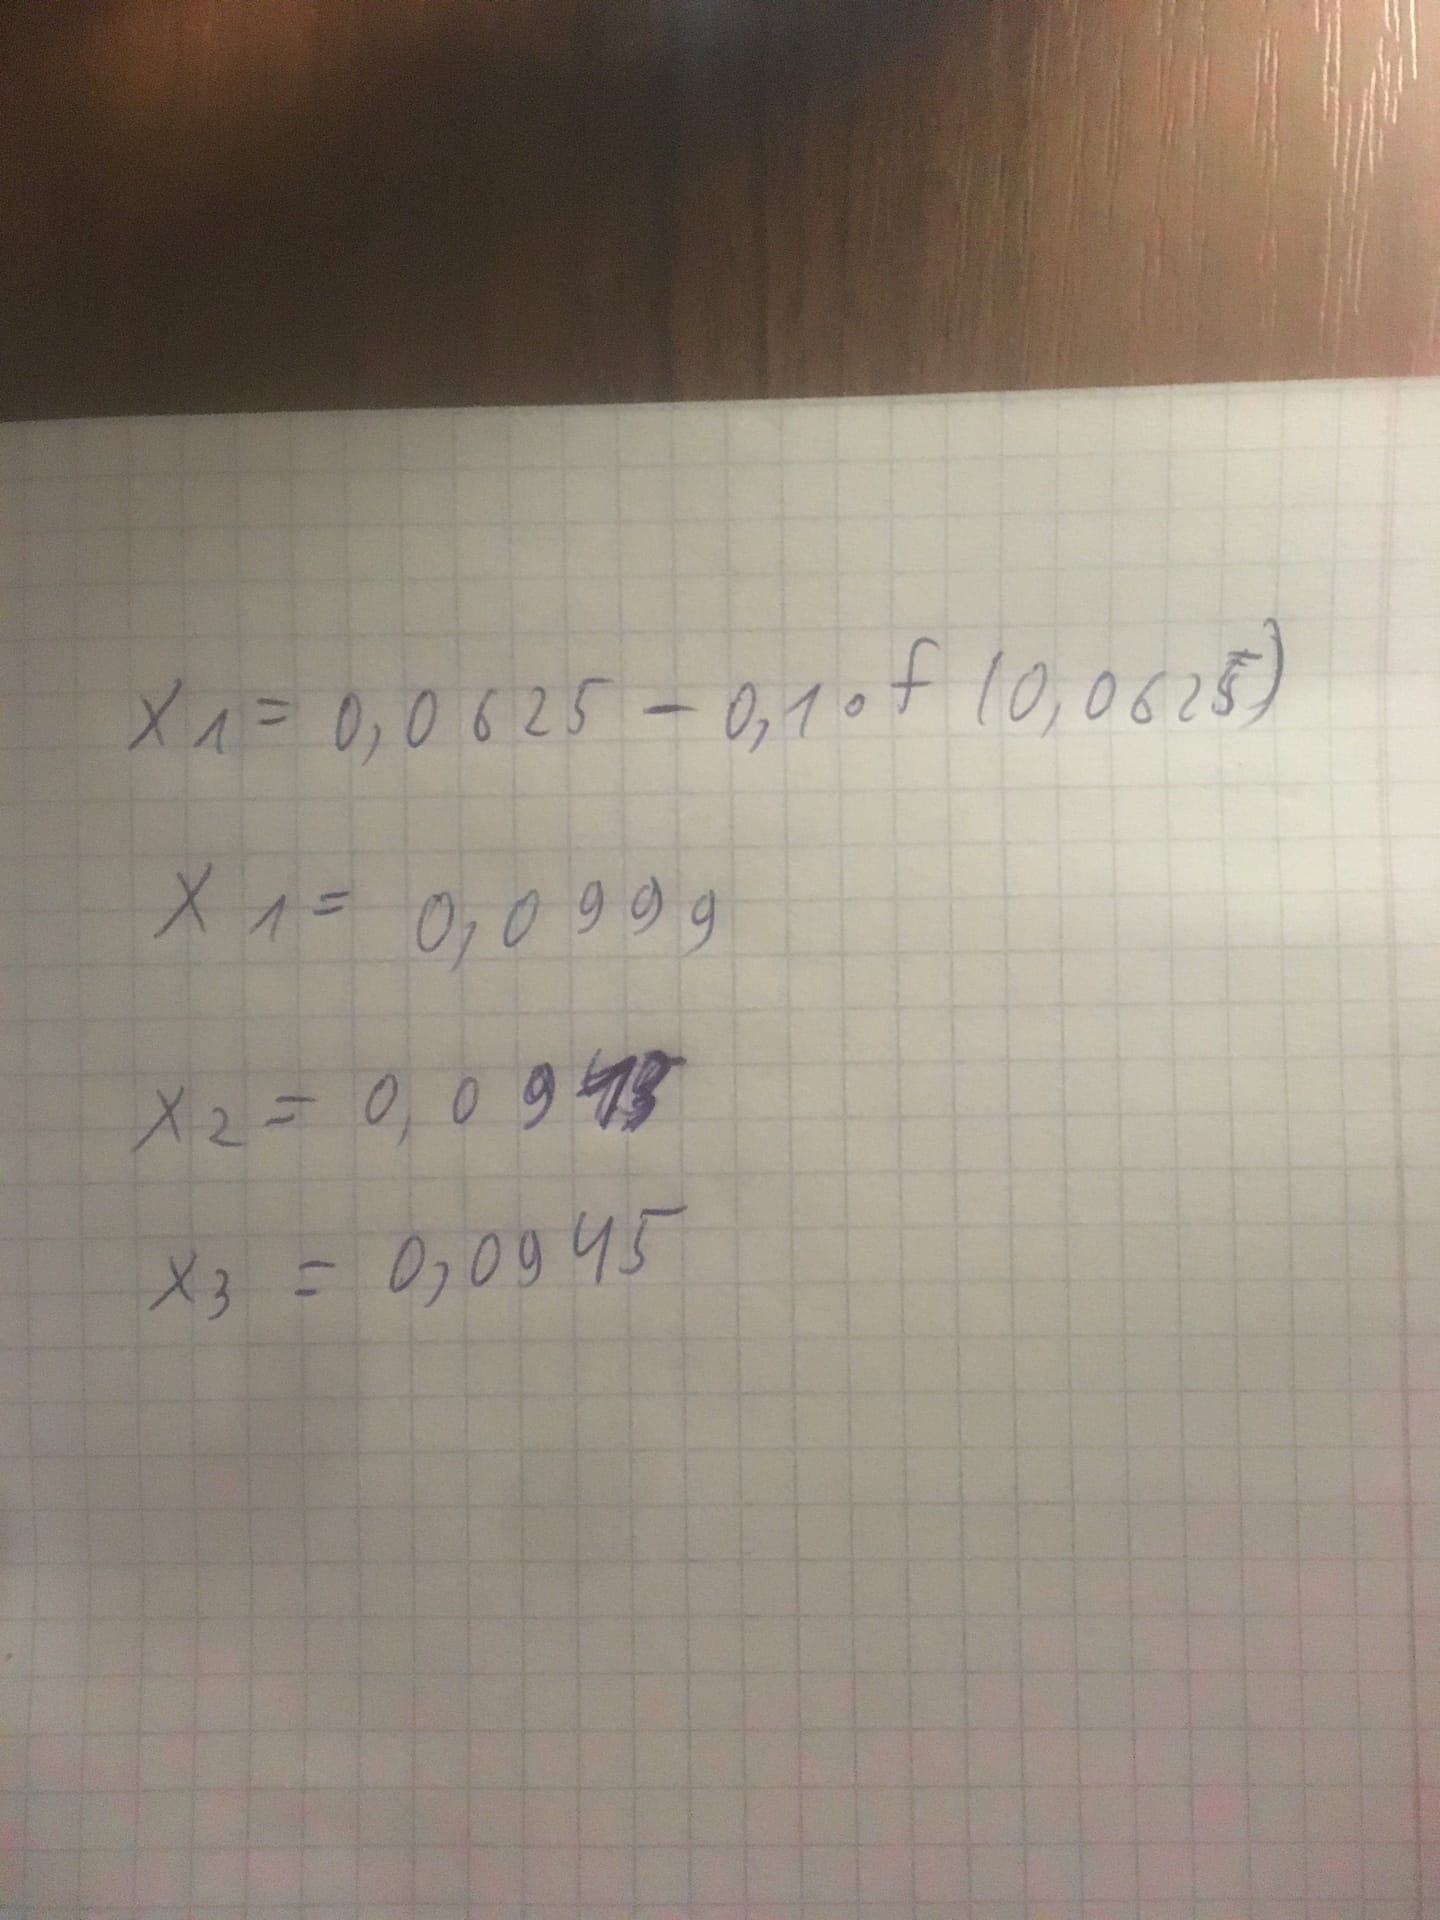 x1 = 0,0625 - 0,1 ∘ f (0,0625)
x1 = 0,0999
x2 = 0,09
x3 = 0,0945